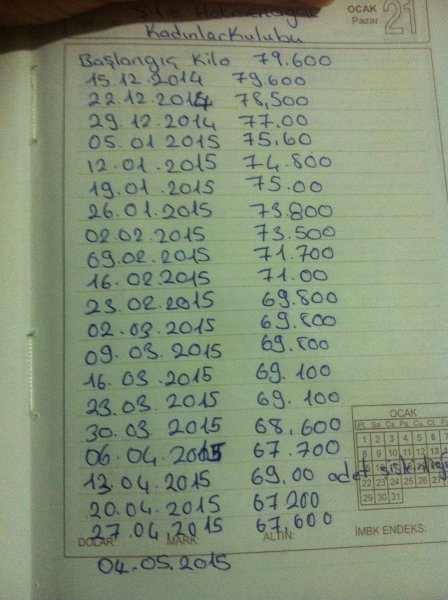 OCAK
Pazar
21
Kadınlar Kulubu
Başlangıç Kilo 79.600
15.12.2014 79.600
22.12.2014 78,500
29.12.2014 77.00
05.01.2015 75.60
12.01.2015 74.800
19.01.2015 75.00
26.01.2015 73.800
02.02.2015 73.500
09.02.2015 71.700
16.02.2015 71.00
23.02.2015 69.800
02.03.2015 69.800
09.03.2015 69.800
16.03.2015 69.100
23.03.2015 69.100
30.03.2015 68.600
06.04.2015 67.700
13.04.2015 69.00 adet
20.04.2015 67200
27.04.2015 67.600
04.05.2015
OCAK
Pt. Sa. Ça. Pe. Cu. Ct.
1 2 3 4 5 6
8 9 10 11 12 13
22 23 24 25 26 27
29 30 31
DOLAR: MARK: ALTIN: İMBK ENDEKS: